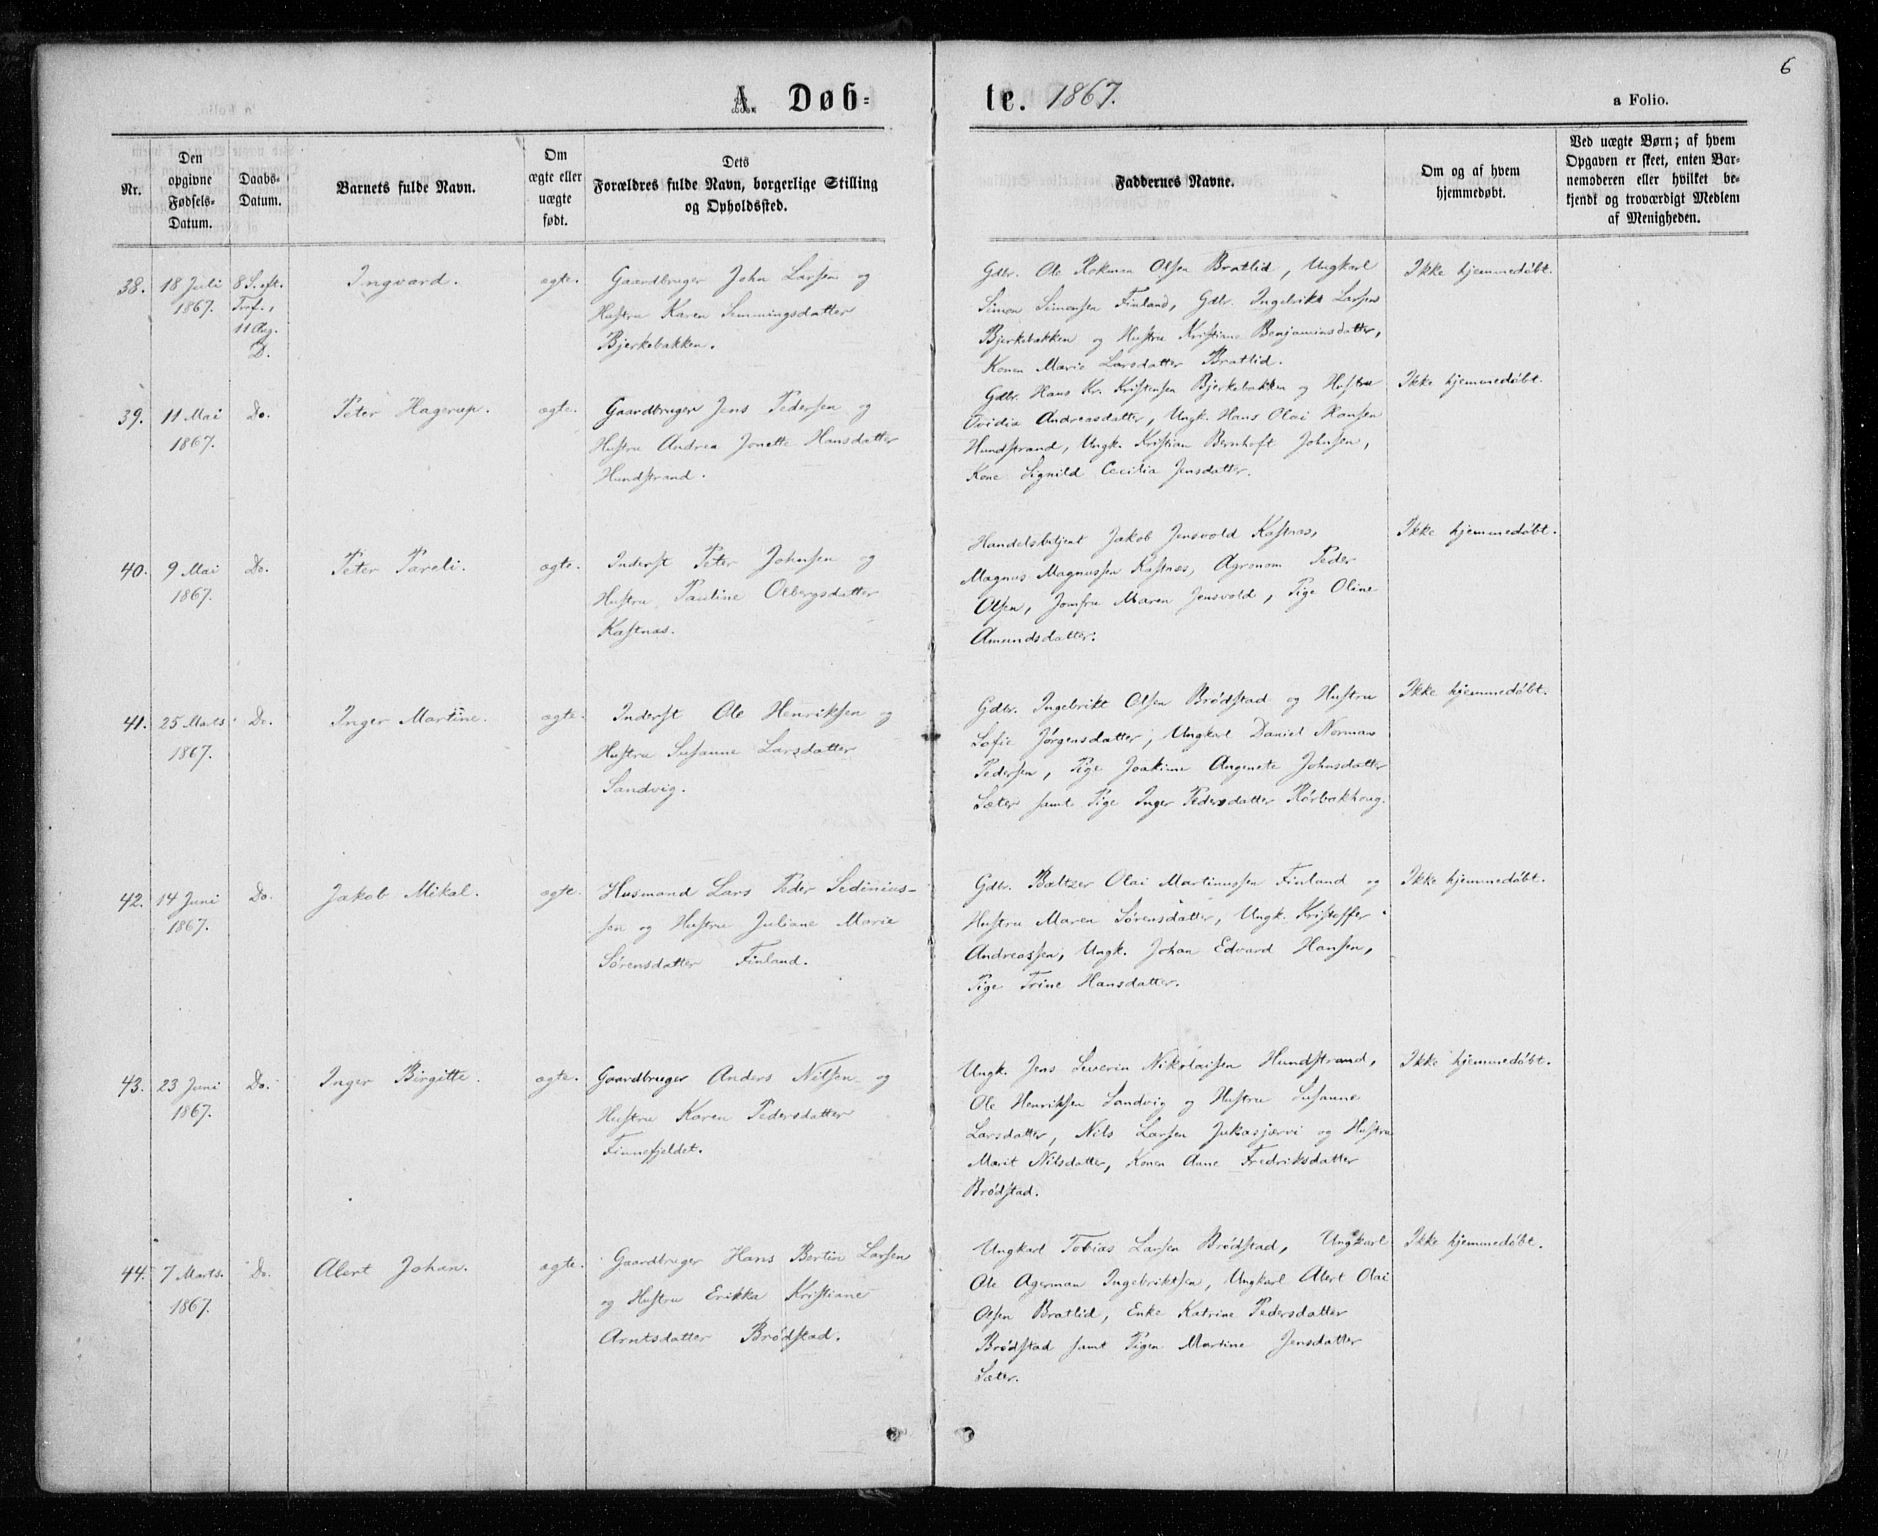 6
A. Døb=
te. 1867.
a Folio.
Nr.
Den opgivne Fødsels-Datum.
Daabs-Datum.
Barnets fulde Navn.
Om ægte eller uægte født.
Dets Forældres fulde Navn, borgerlige Stilling og Opholdssted.
Faddernes Navne.
Om og af hvem hjemmedøbt.
Ved uægte Børn; af hvem Opgaven er skeet, enten Barnemoderen eller hvilket bekjendt og troværdigt Medlem af Menigheden.
38.
18 Juli
1867.
8 Sept.
Trof.,
11 Aug.
D.
Ingvard.
ægte.
Gaardbruger John Larsen og
Hustru Karen Semmingsdatter
Bjerkebakken.
Gdbr. Ole Rokman Olsen Bratlid, Ungkarl
Simon Simonsen Finland, Gdbr. Ingebrikt Larsen
Bjerkebakken og Hustru Kristiane Benjaminsdatter,
Konen Marie Larsdatter Bratlid.
Ikke hjemmedøbt.
39.
11 Mai
1867.
Do.
Peter Hagerup.
ægte.
Gaardbruger Jens Pedersen og
Hustru Andrea Jonette Hansdatter
Hundstrand.
Gdbr. Hans Kr. Kristensen Bjerkebakken og Hustru
Ovidia Andreasdatter, Ungk. Hans Olai Hansen
Hundstrand, Ungk. Kristian Bernhoft Johnsen,
Kone Signild Cecilia Jensdatter.
Ikke hjemmedøbt.
40.
9 Mai
1867.
Do.
Peter Pareli.
ægte.
Inderst Peter Johnsen og
Hustru Pauline Olbergsdatter
Kastnæs.
Handelsbetjent Jakob Jensvold Kastnæs,
Magnus Magnussen Kastnæs, Agronom Peder
Olsen, Jomfru Maren Jensvold, Pige Oline
Amundsdatter.
Ikke hjemmedøbt.
41.
25 Marts
1867.
Do.
Inger Martine.
ægte.
Inderst Ole Henriksen og
Hustru Susanne Larsdatter
Sandvig.
Gdbr. Ingebrikt Olsen Brødstad og Hustru
Sofie Jørgensdatter, Ungkarl Daniel Norman
Pedersen, Pige Joakime Angenete Johnsdatter
Sæter samt Pige Inger Pedersdatter Rørbakhaug.
Ikke hjemmedøbt.
42.
14 Juni
1867.
Do.
Jakob Mikal.
ægte.
Husmand Lars Peder Sedinius-
sen og Hustru Juliane Marie
Sørensdatter Finland.
Gdbr. Baltzer Olai Martinussen Finland og
Hustru Maren Sørensdatter, Ungk. Kristoffer
Andreassen, Ungk. Johan Edvard Hansen,
Pige Trine Hansdatter.
Ikke hjemmedøbt.
43.
23 Juni
1867.
Do.
Inger Birgitte.
ægte.
Gaardbruger Anders Nilsen og
Hustru Karen Pedersdatter
Finnefjeldet.
Ungk. Jens Severin Nikolaisen Hundstrand,
Ole Henriksen Sandvig og Hustru Susanne
Larsdatter, Nils Larsen Jukasjærvi og Hustru
Marit Nilsdatter, Konen Anne Fredriksdatter
Brødstad.
Ikke hjemmedøbt.
44.
7 Marts.
1867.
Do.
Alert Johan.
ægte.
Gaardbruger Hans Bertin Larsen
og Hustru Erikka Kristiane
Arntsdatter Brødstad.
Ungkarl Tobias Larsen Brødstad, Ungkarl
Ole Agerman Ingebriktsen, Ungkarl Alert Olai
Olsen Bratlid, Enke Katrine Pedersdatter
Brødstad samt Pigen Martine Jensdatter
Sæter.
Ikke hjemmedøbt.